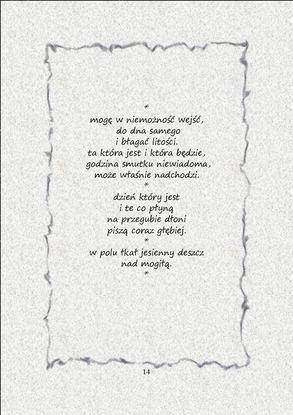 *
mogę w niemożność wejść,
do dna samego
i błagać litości.
ta która jest i która będzie,
godzina smutku niewiadoma,
może właśnie nadchodzi.
*
dzień który jest
i te co płyną
na przegubie dłoni
piszą coraz głębiej.
*
w polu tkał jesienny deszcz
nad mogiłą.
*
14